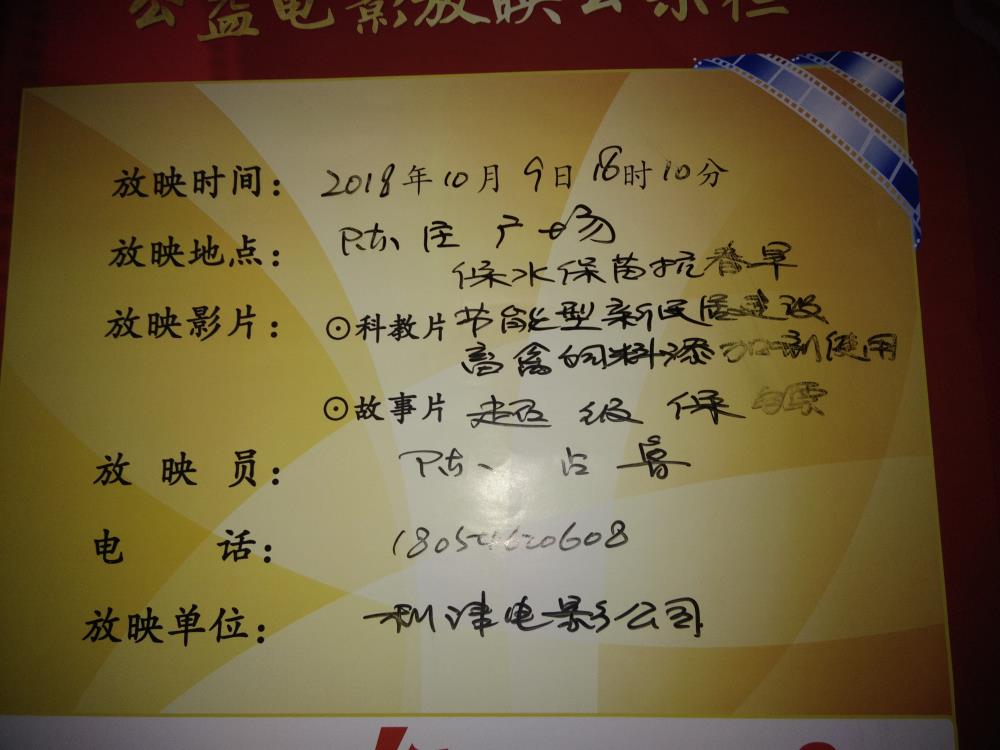 公益电影放映公示栏
放映时间：2018年10月9日18时10分
放映地点：陈庄广场
保水保苗抗春旱
放映影片：⊙科教片 节能型新民居建设
畜禽饲料添加剂使用
⊙故事片 超级保镖
放映员：陈占鲁
电话：18054620608
放映单位：利津电影公司